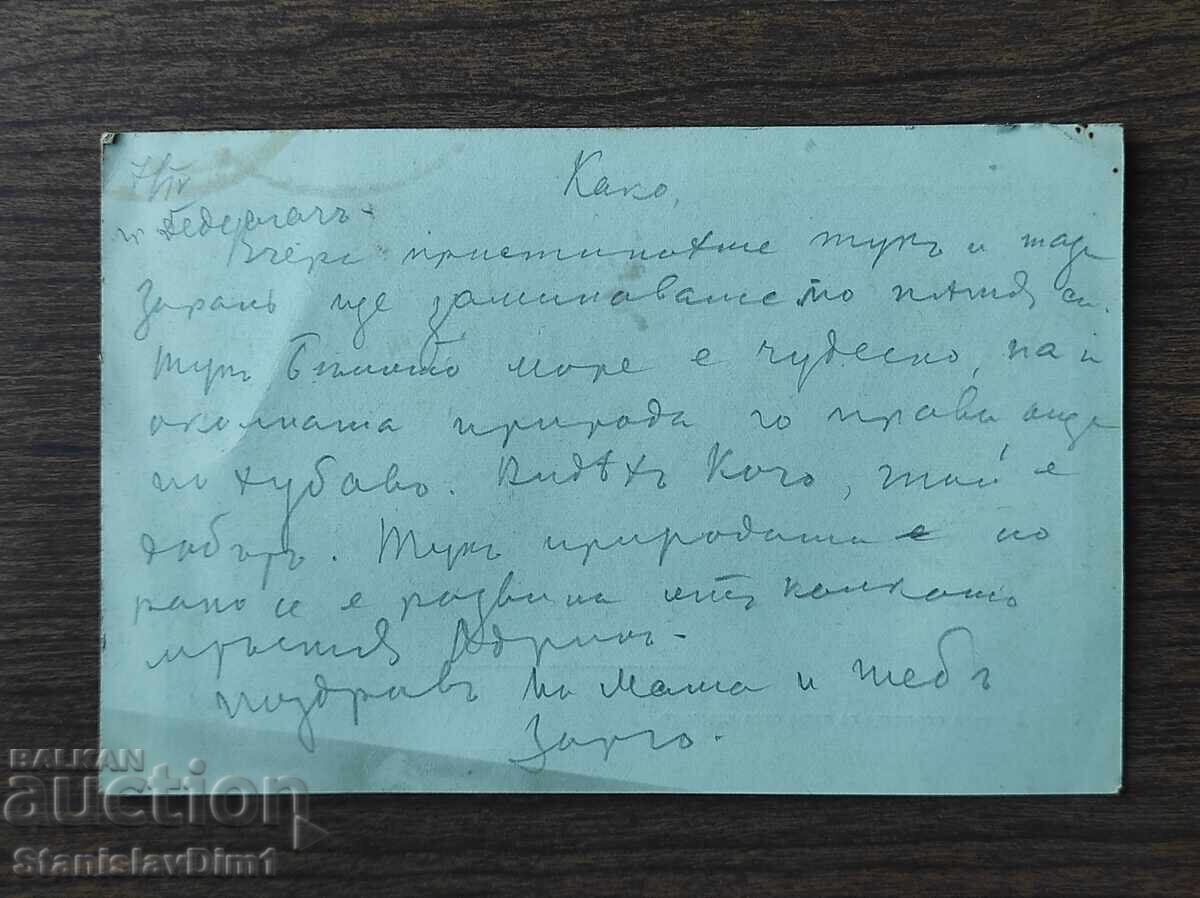 7/IV
Како,
гр. Дедеагачъ -
Вчера пристигнахме тукъ и тази
Зарань ще заминаваме по пѫтя си.
Тукъ Бѣлото море е чудесно, па и
околната природа го прави още
по хубаво. Видѣхъ Кочо, той е
добъръ. Тукъ природата е по
рано се е развила отъ колкото
Одринъ -
поздравъ на Мама и тебъ
BALKAN
auction
StanislavDim1